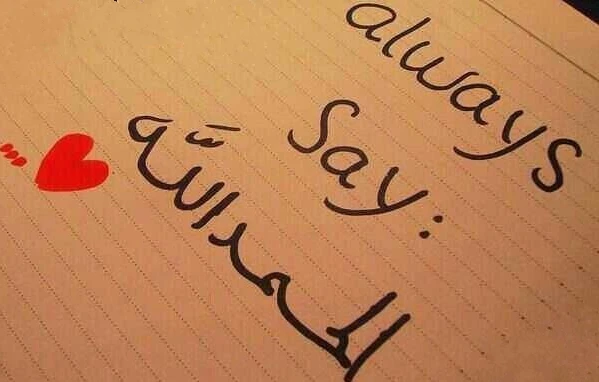 always
Say:
الحمد الله